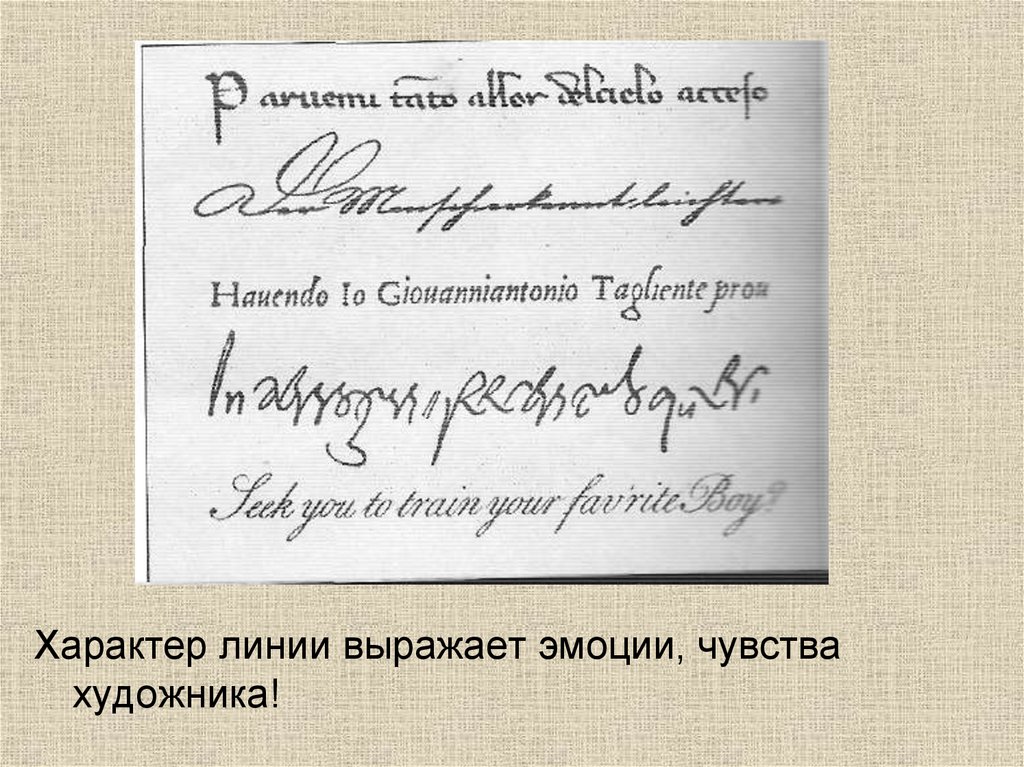 Paruenu tāto allor delcielo acceso
Der Mensch erkennt leichter
Hauendo Io Giouanniantonio Tagliente prou
In
Seek you to train your fav'rite Boy?
Характер линии выражает эмоции, чувства
художника!